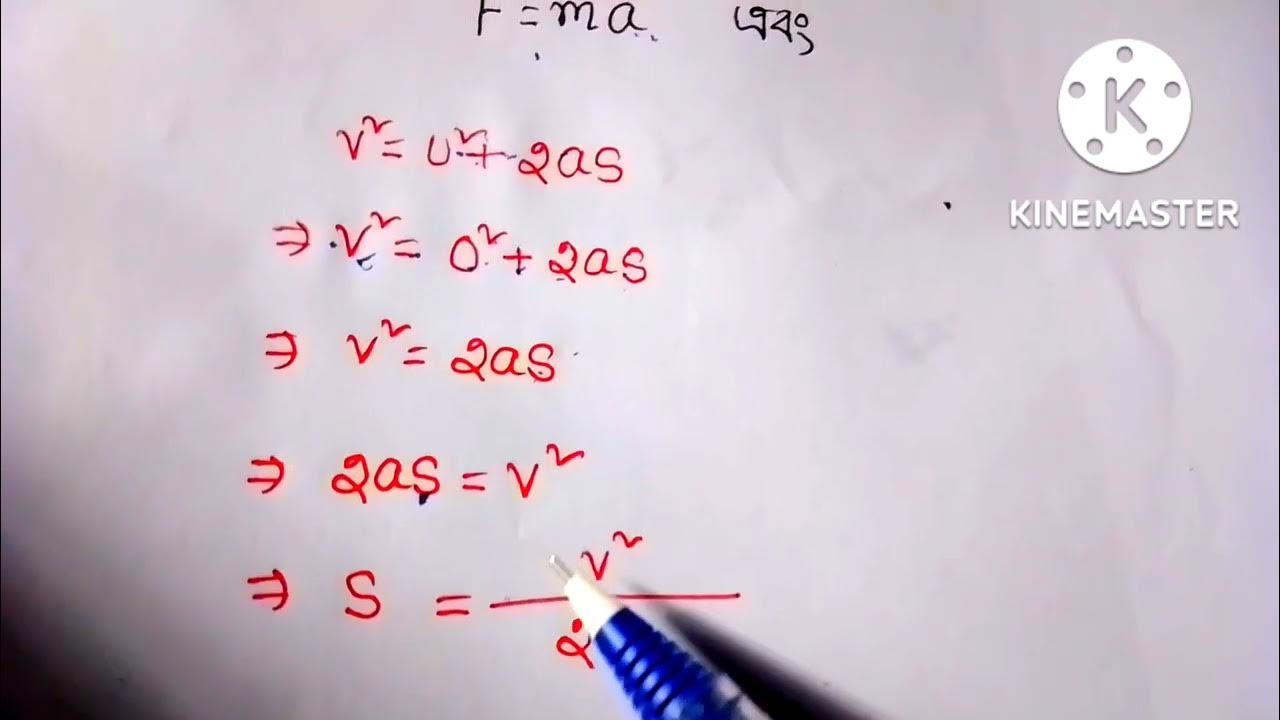 F = ma. এবং
v² = u² + 2as
⇒ v² = 0² + 2as
⇒ v² = 2as
⇒ 2as = v²
⇒ s = v² / 2
K
KINEMASTER